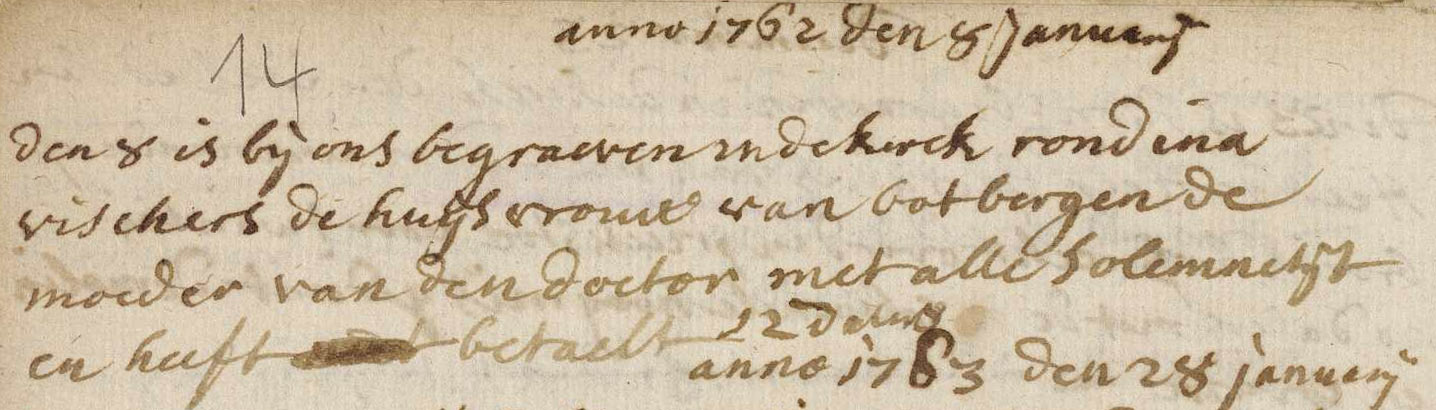 anno 1762 den 8 januarij
14
den 8 is bij ons begraeven in de kirck rondina
vischers de huijsvrouw van botbergen de
moeder van den doctor met alle solemnetijt
en heeft betaelt 12 dalers
anno 1763 den 28 januarij